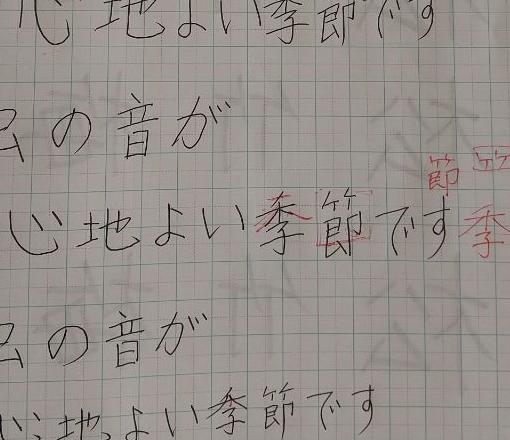 心地よい季節です
の音が
節
心地よい季節です季
の音が
心地よい季節です